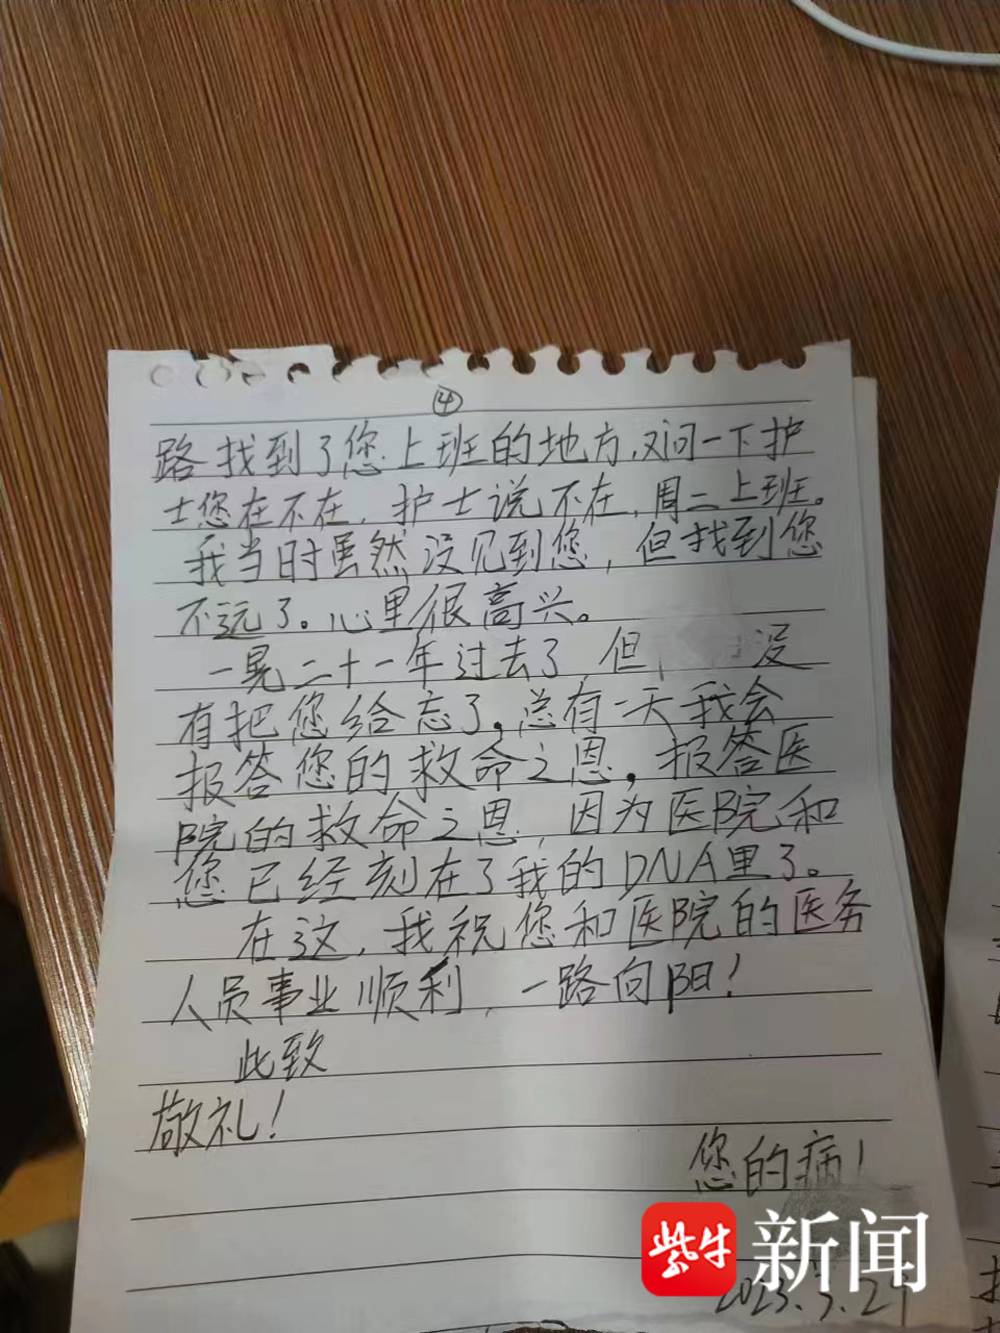 ④
路找到了您上班的地方,又问一下护
士您在不在,护士说不在,周二上班。
我当时虽然没见到您,但找到您
不远了。心里很高兴。
一晃二十一年过去了,但 没
有把您给忘了,总有一天我会
报答您的救命之恩,报答医
院的救命之恩,因为医院和
您已经刻在了我的DNA里了。
在这,我祝您和医院的医务
人员事业顺利,一路向阳!
此致
敬礼!
您的病
紫牛新闻
2023.3.29